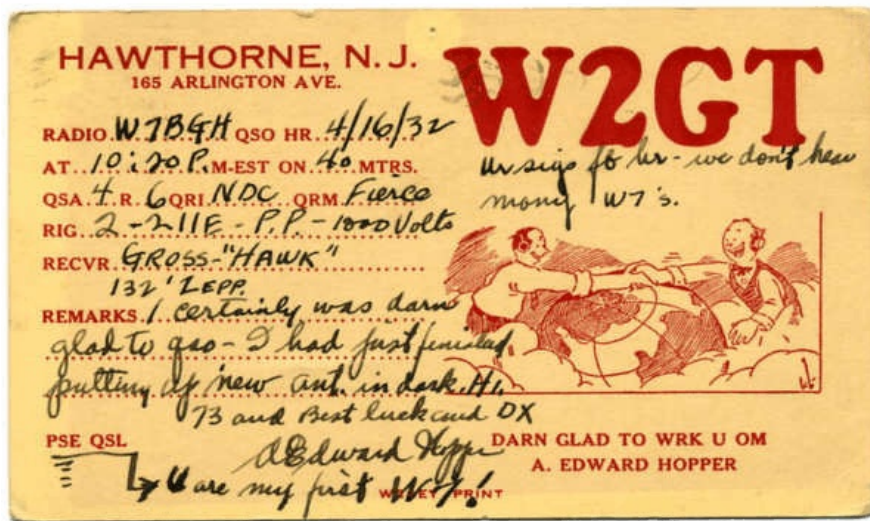 HAWTHORNE, N. J.
165 ARLINGTON AVE.
W2GT
RADIO W7BGH QSO HR 4/16/32
AT 10:20 P. M-EST ON 40 MTRS.
QSA 4 R 6 QRI NDC QRM Fierce
RIG 2-211E - P.P. - 1000 Volts
RECVR GROSS-"HAWK"
132' ZEPP.
Ur sigs fb hr - we don't hear
many W7's.
REMARKS I certainly was darn
glad to qso - I had just finished
putting up new ant. in dark. HI.
73 and Best luck and DX
PSE QSL
A Edward Hopper
U are my first W7!
DARN GLAD TO WRK U OM
A. EDWARD HOPPER
PRINT